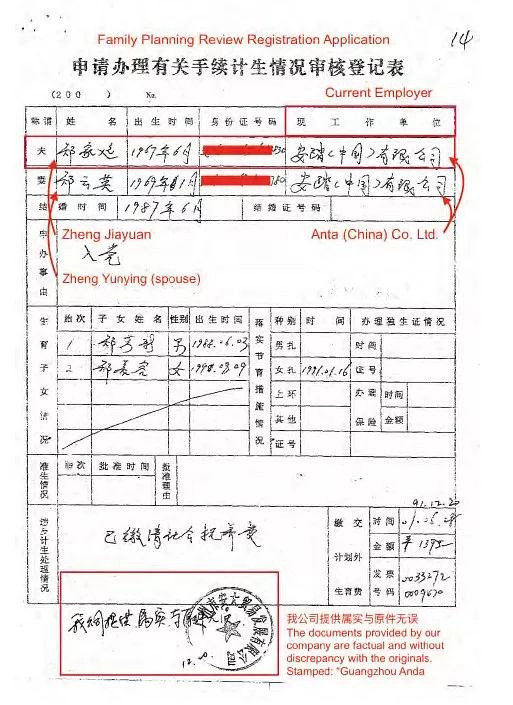 Family Planning Review Registration Application
14
申请办理有关手续计生情况审核登记表
(200 ) No.
Current Employer
称谓 姓名 出生时间 身份证号码 现工作单位
夫 1967年6月 安踏(中国)有限公司
妻 郑云英 1969年11月 安踏(中国)有限公司
结婚时间 1987年6月 结婚证号码
Zheng Jiayuan
Anta (China) Co. Ltd.
申办事由 入党
Zheng Yunying (spouse)
生育子女情况 胎次 子女姓名 性别 出生时间 落实节育措施情况 种别 时间 办理独生证情况
1 男 1988.06.03 男扎 时间
2 女 1990.09.09 女扎 1991.01.16 证号
上环 办理保险 时间
其他 金额
证号
准生情况 胎次 批准时间 批准理由
91.12.20
违占计生处理情况 已缴清社会抚养费 缴交计划外生育费 时间
金额 ¥
发票号码 0033272
0009670
我公司提供属实与原件无误
The documents provided by our
company are factual and without
discrepancy with the originals.
Stamped: "Guangzhou Anda